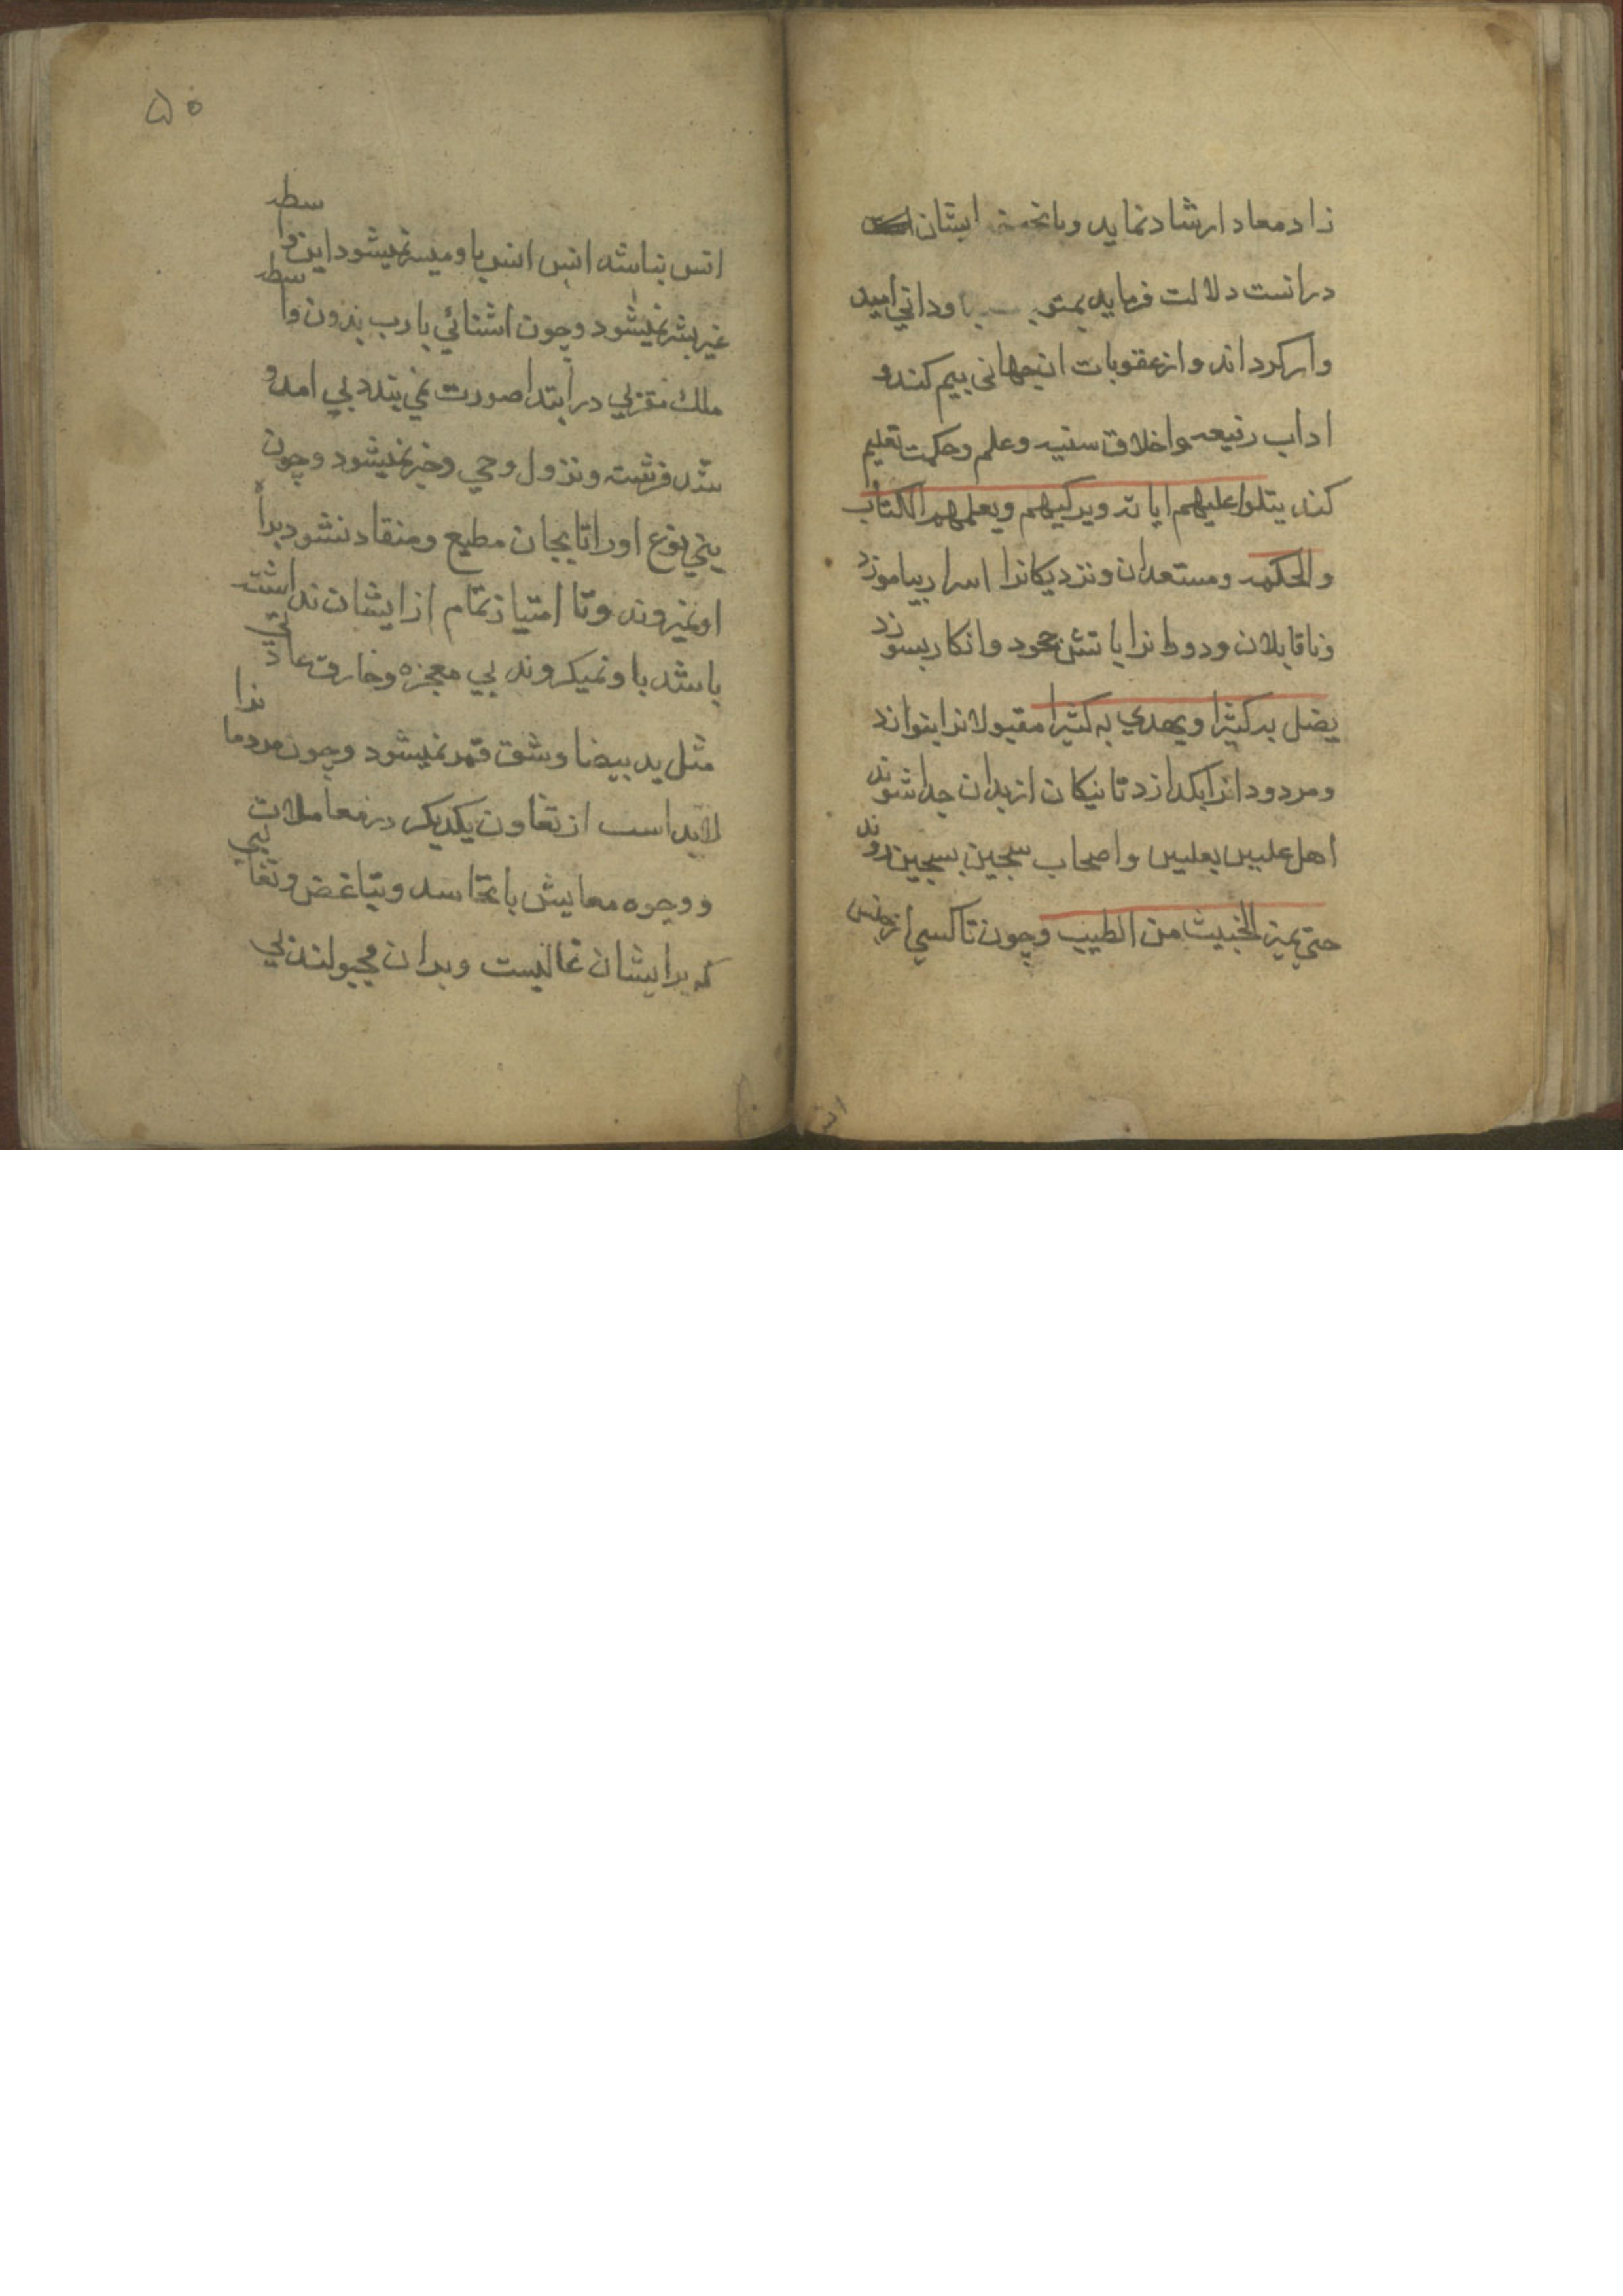 زاد معاد ارشاد نماید و بانچه ایشان
در انست دلالت فرماید بمثوبات جاودانی امید
وار کرداند و از عقوبات انجهانی بیم کند و
اداب رفیعه و اخلاق سنیه و علم و حکمت تعلیم
کند یتلوا علیهم ایاته ویزکیهم ویعلمهم الکتاب
والحکمه و مستعدان و نزدیکانرا اسرار بیاموزد
و ناقابلان و دورانرا باتش جحود و انکار بسوزد
یضل به کثیرا ویهدي به کثیرا مقبولانرا بنوازد
و مردودانرا بکدازد تا نیکان از بدان جدا شوند
اهل علیین بعلیین و اصحاب سجین بسجین روند
حتی یمیز الخبیث من الطیب وچون تا کسي از جنس
۵۰
انس نباشد انس انس با و میسر نمیشود این واسطه
غیر بشر نمیشود وچون اشنائي با رب بدون واسطه
ملك مقربي در ابتدا صورت نمي بندد بي امد و
شد فرشته و نزول وحي و خبر نمیشود وچون
بني نوع اورا تا بجان مطیع و منقاد نشود براه
او نمیروند و تا امتیاز تمام از ایشان نداشته
باشد با و نمیکروند بي معجزه و خارق عادتي
مثل ید بیضا و شق قمر نمیشود وچون مردمانرا
لابد است از تعاون یکدیکر در معاملات
و وجوه معایش با تحاسد و تباغض و تغالبي
که بر ایشان غالبست و بران مجبولند بي